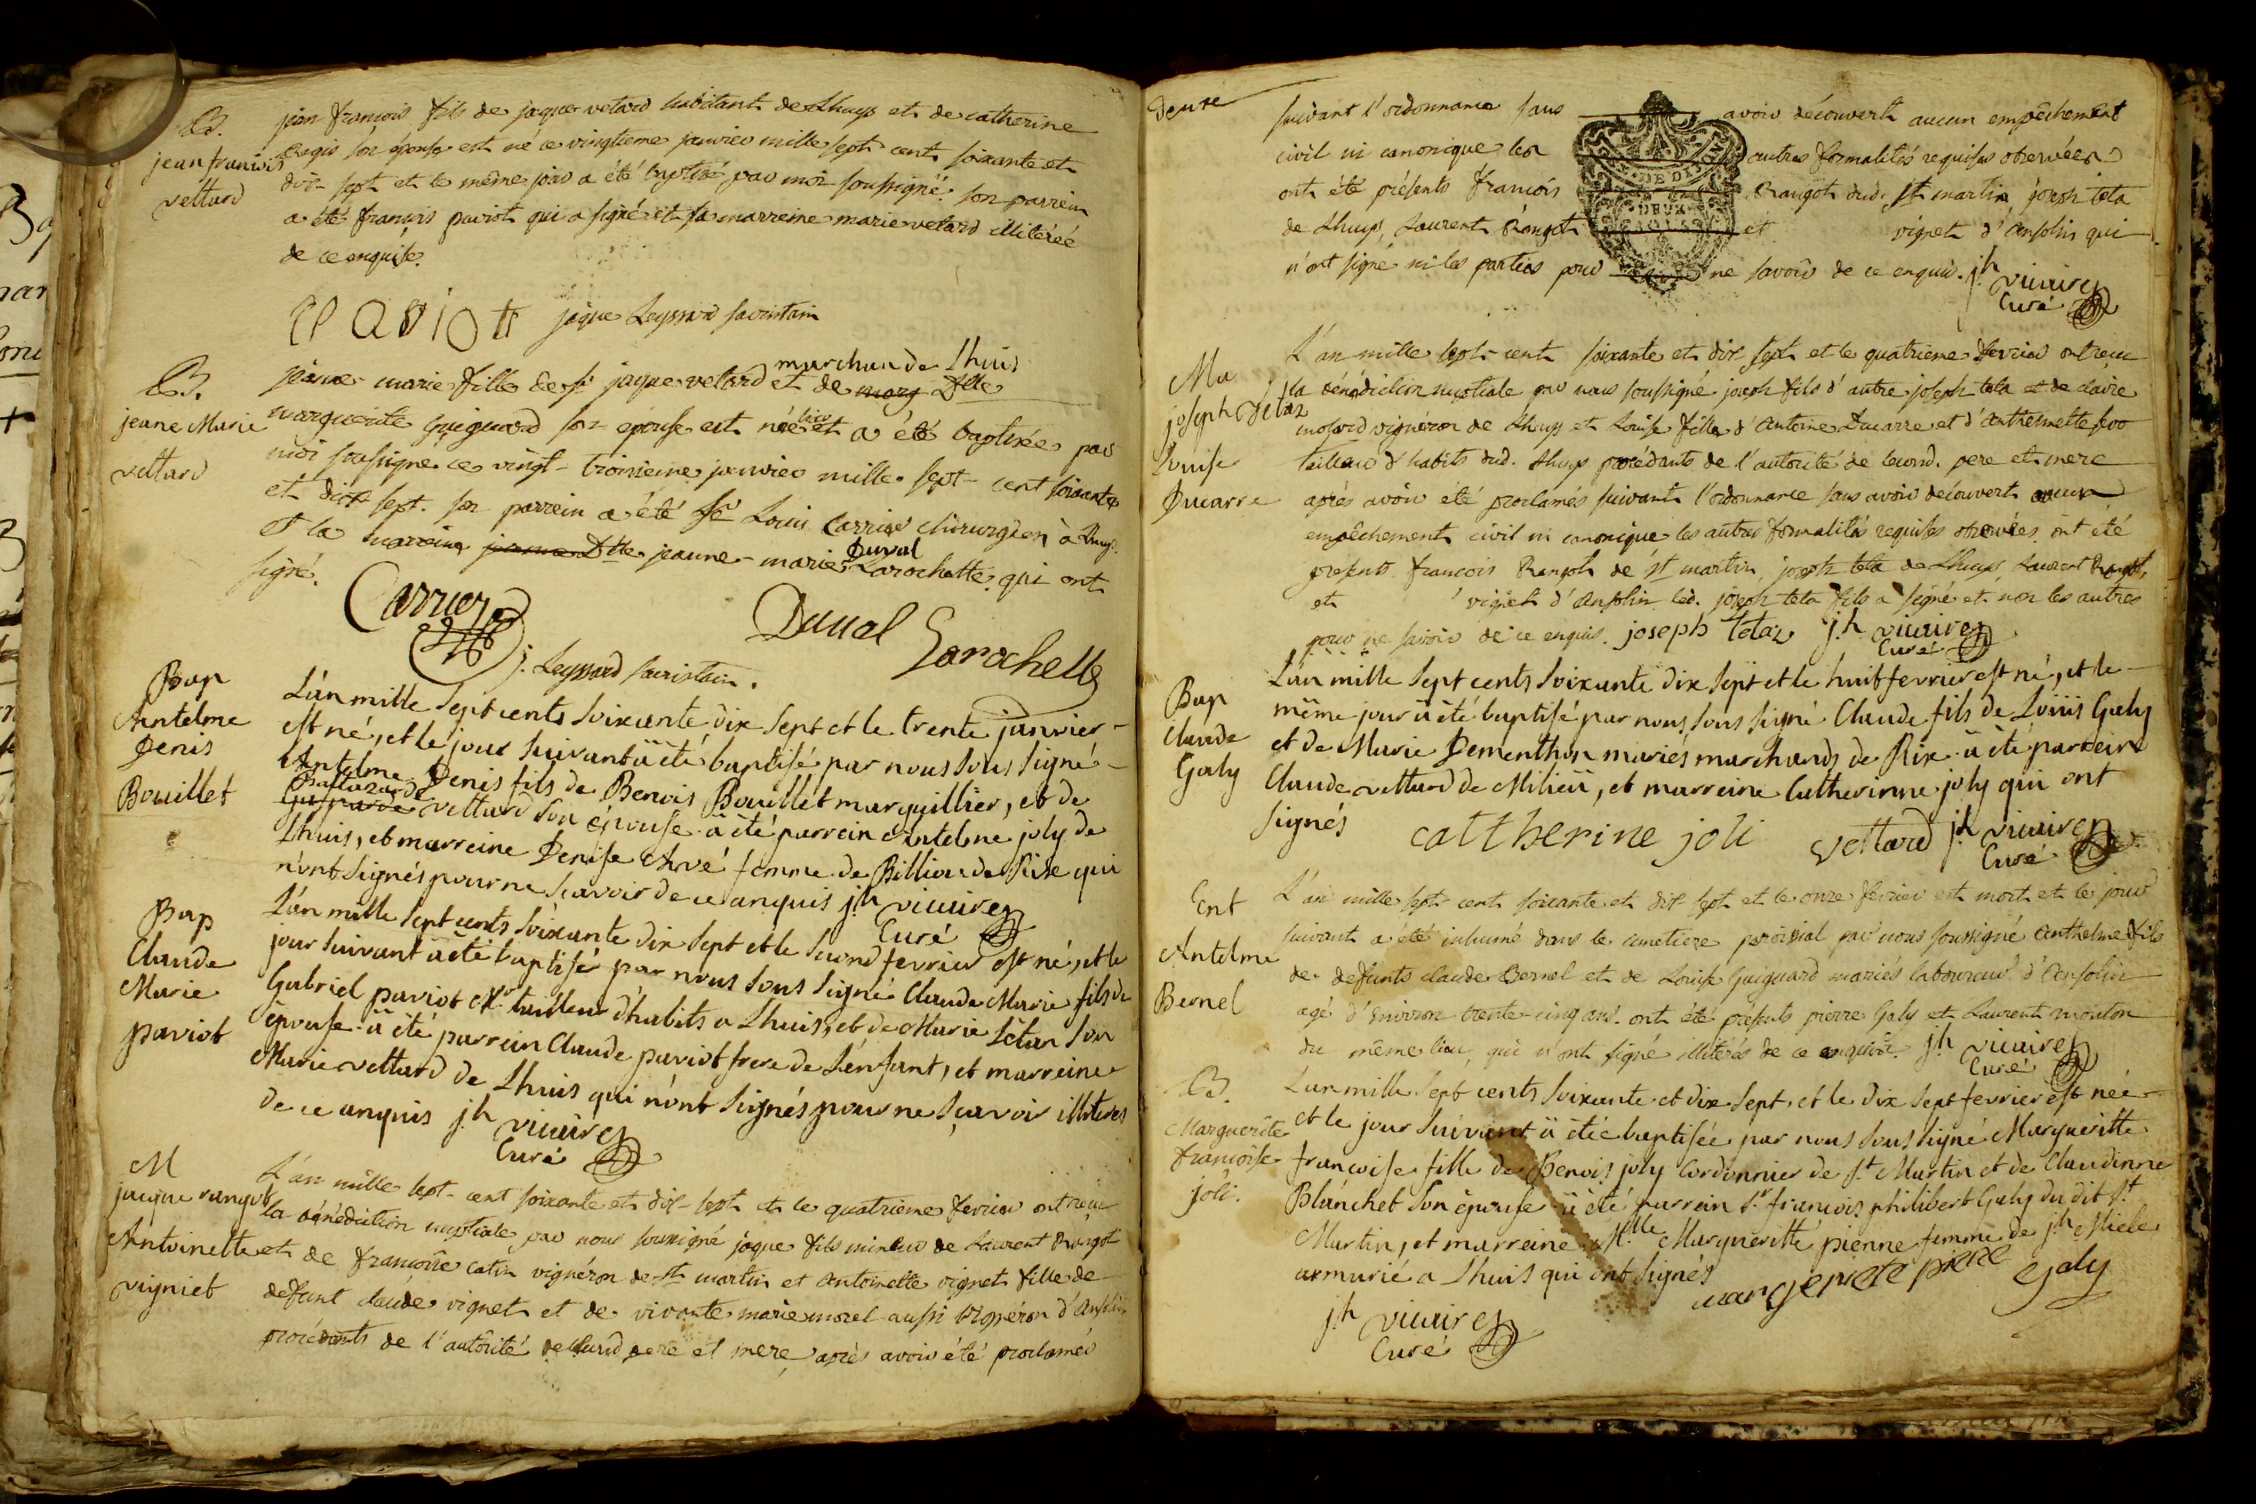 B.
jean francois
vettard
jean francois fils de jaque vetard habitant de Lhuys et de catherine
son épouse est né ce vingtieme janvier mille sept cent soixante et
dix sept et le même jour a été baptisé par moi soussigné. son parrein
a été françois paviot qui a signé et sa marreine marie vetard illiterée
de ce enquise.
paviot jaque Leyssard sacristain
B.
jeane Marie
vettard
marchand de Lhuis
jeanne marie fille de sr jaque vetard et de marg Dlle
marguerite Guiguard son épouse est née et a été baptisée par
moi soussigné ce vingt-troisieme janvier mille sept cent soixante
et dix sept. son parrein a été Sr Louis Carrier chirurgien à Lhuys
et la marreine jeanne Dlle jeanne-marie Duval Larochette qui ont
signé.
Carrier
Duval Larochette
j. Leyssard sacristain.
Bap
Antelme
Denis
Bouillet
L'an mille sept cents soixante dix sept et le trente janvier
est né, et le jour suivant a été baptisé par nous sous signé
Antelme Denis fils de Benois Bouillet marguillier, et de
Baltazarde
Gasparde vettard son épouse a été parrein Antelme joly de
Lhuis, et marreine Denise Arvé femme de Billion de Rix qui
n'ont signés pour ne sçavoir de ce anquis jh vicaire
Curé
Bap
Claude
Marie
paviot
L'an mille sept cents soixante dix sept et le second fevrier est né, et le
jour suivant a été baptisé par nous sous signé Claude Marie fils de
Gabriel paviot Mr tailleur d'habits a Lhuis, et de Marie Létan son
épouse a été parrein Claude paviot frere de L'enfant, et marreine
Marie vettard de Lhuis qui n'ont signés pour ne sçavoir illiteres
de ce anquis jh vicaire
Curé
M
jacque rangot
Antoinette
vigniet
L'an mille sept-cent soixante et dix-sept et le quatrieme fevrier ont reçu
la bénédiction nuptiale par nous soussigné jaque fils mineur de Laurent Rangot
et de francoise catin vigneron de st martin et antoinette vignet fille de
defunt claude vignet et de vivante marie morel aussi vigneron d'ansolin
procédants de l'autorité de leurd pere et mere après avoir été proclamés
Deuxe
suivant l'ordonnance sans avoir découvert aucun empêchement
civil ni canonique les autres formalités requises observées
ont été présents francois Rangot dud. st martin, joseph teta
de Lhuys, Laurent Rangot et vignet d'ansolin qui
n'ont signé ni les parties pour ne savoir de ce enquis. jh vicaire
Curé
DE DIJON
DEUX
SOLS
Ma
joseph Tétaz
Louise
Ducarre
L'an mille sept-cent soixante et dix sept et le quatrieme fevrier ont reçu
la bénédiction nuptiale par nous soussigné joseph fils d'autre joseph teta et de claire
mosard vigneron de Lhuys et Louise fille d'Antoine Ducarre et d'anthelmette
tailleur d'habits dud. Lhuys procédants de l'autorité de leurd. pere et mere
après avoir été proclamés suivant l'ordonnance sans avoir découvert aucun
empêchement civil ni canonique les autres formalités requises observées, ont été
presents francois Rangot de st martin, joseph teta de Lhuys, Laurent Rangot
et vignet d'ansolin led. joseph teta fils a signé et non les autres
pour ne savoir de ce enquis. joseph tetaz jh vicaire
Curé
Bap
Claude
Galy
L'an mille sept cents soixante dix sept et le huit fevrier est né, et le
même jour a été baptisé par nous sous signé Claude fils de Loüis Galy
et de Marie Dementhon mariés marchands de Rix a été parrein
Claude vettard de Milieu, et marreine Catherinne joly qui ont
signés cattherine joli vettard jh vicaire
Curé
Ent
Antelme
Bernel
L'an mille sept cent soixante et dix sept et le onze fevrier est mort et le jour
suivant a été inhumé dans le cimetiere paroissial par nous soussigné anthelme fils
de defunts claude Bernel et de Louise Guiguard mariés laboureur d'ansolin
agé d'environ trente cinq ans. ont été presents pierre Galy et Laurent mouton
du même lieu, qui n'ont signé illitérés de ce enquis. jh vicaire
Curé
B.
Marguerite
francoise
joli.
L'an mille sept cents soixante et dix sept, et le dix sept fevrier est née
et le jour suivant a été baptisée par nous sous signé Margueritte
francoise fille de Benois joly Cordonnier de st Martin et de Claudinne
Blanchet son épouse a été parrein sr francois philibert Galy du dit st
Martin, et marreine Mlle Margueritte pienne femme de jh Miele
armurié a Lhuis qui ont signés
Galy
jh vicaire
Curé